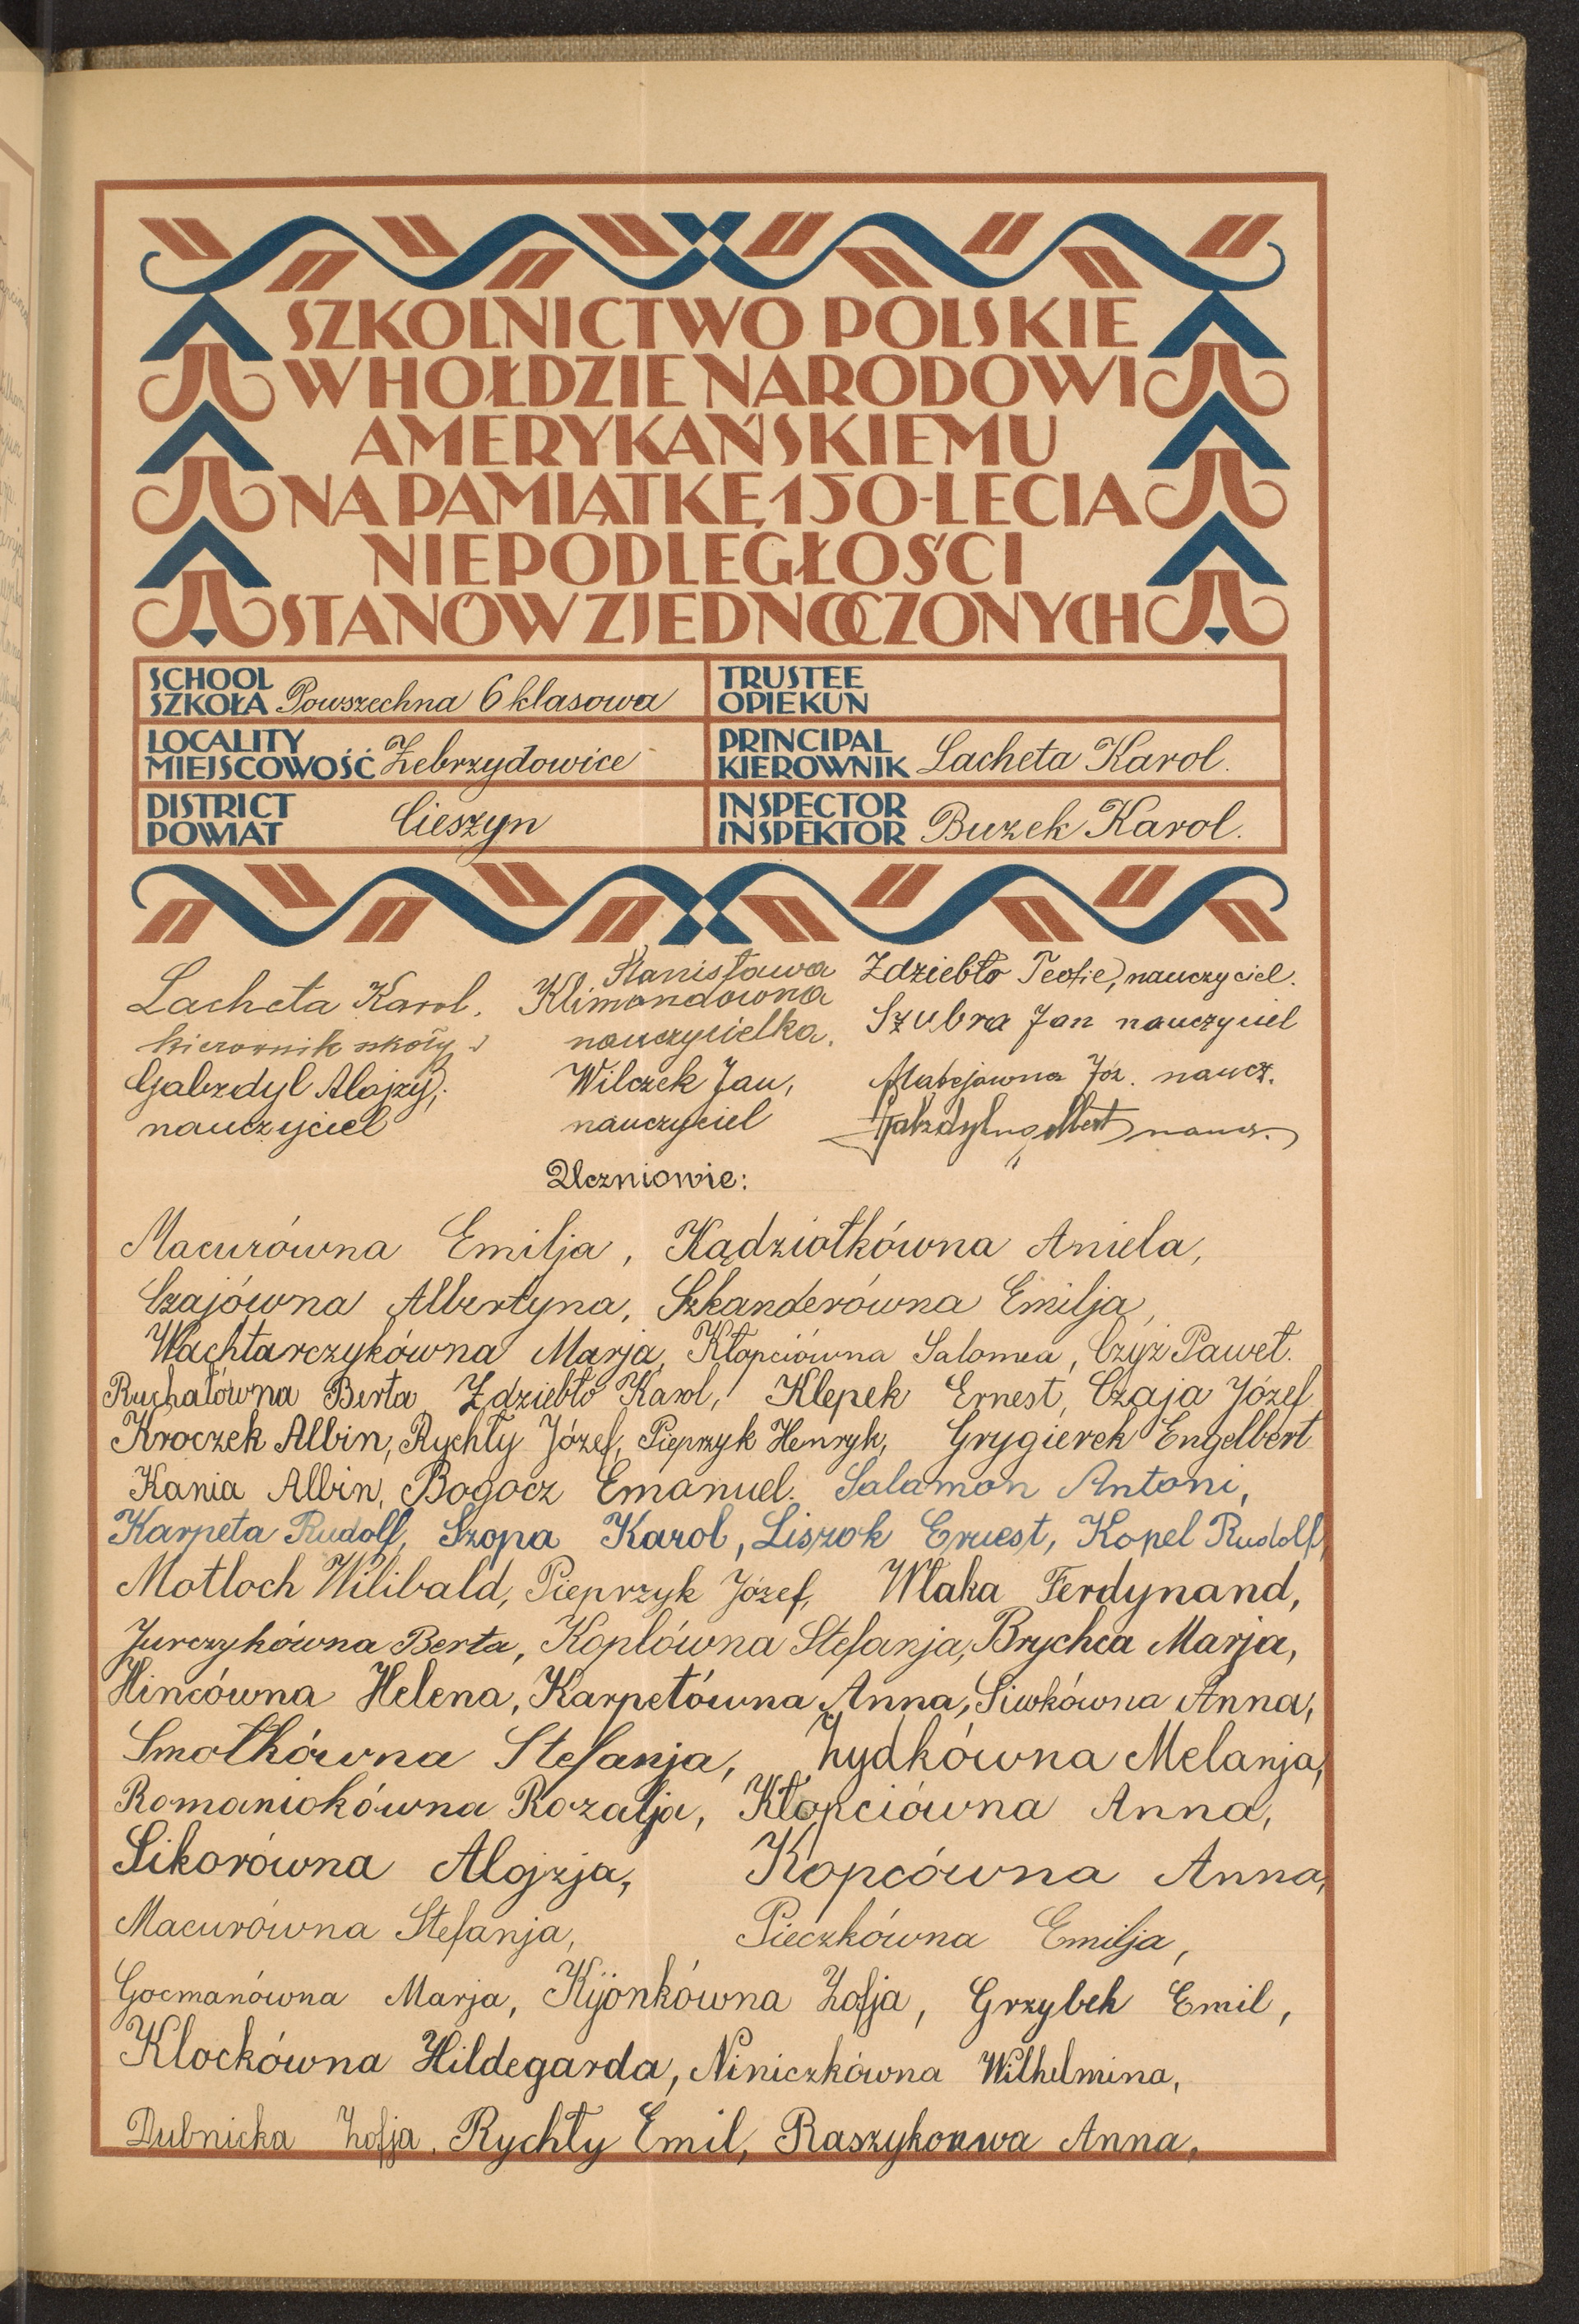 SZKOLNICTWO POLSKIE
W HOŁDZIE NARODOWI
AMERYKAŃSKIEMU
NA PAMIĄTKĘ 150-LECIA
NIEPODLEGŁOŚCI
STANÓW ZJEDNOCZONYCH
SCHOOL
SZKOŁA Powszechna 6 klasowa
TRUSTEE
OPIEKUN
LOCALITY
MIEJSCOWOŚĆ Zebrzydowice
PRINCIPAL
KIEROWNIK Lacheta Karol.
DISTRICT
POWIAT Cieszyn
INSPECTOR
INSPEKTOR Buzek Karol.
Lacheta Karol.
kierownik szkoły
Gabzdyl Alojzy,
nauczyciel
Stanisława
Klimondówna
nauczycielka.
Wilczek Jan,
nauczyciel
Zdziebło Teofil, nauczyciel.
Szubra Jan nauczyciel
Matejówna Józ. naucz.
Gabzdyl Engelbert naucz.
Uczniowie:
Macurówna Emilja, Kądziołkówna Aniela,
Czajówna Albertyna, Szkanderówna Emilja,
Wachtarczykówna Marja, Kłapciówna Salomea, Czyż Paweł.
Ruchałówna Berta, Zdziebło Karol, Klepek Ernest, Czaja Józef
Kroczek Albin, Rychły Józef, Pieprzyk Henryk, Grygierek Engelbert
Kania Albin, Bogocz Emanuel. Salamon Antoni,
Karpeta Rudolf, Szopa Karol, Liszok Ernest, Kopel Rudolf,
Motloch Wilibald, Pieprzyk Józef, Wlaka Ferdynand,
Jurczykówna Berta, Koplówna Stefanja, Brychca Marja,
Hincówna Helena, Karpetówna Anna, Siwkówna Anna,
Smołkówna Stefanja, Żydkówna Melanja,
Romaniokówna Rozalja, Kłapciówna Anna,
Sikorówna Alojzja, Kopcówna Anna,
Macurówna Stefanja, Pieczkówna Emilja,
Gocmanówna Marja, Kijonkówna Zofja, Grzybek Emil,
Klockówna Hildegarda, Niniczkówna Wilhelmina,
Dubnicka Zofja, Rychły Emil, Raszykowa Anna,